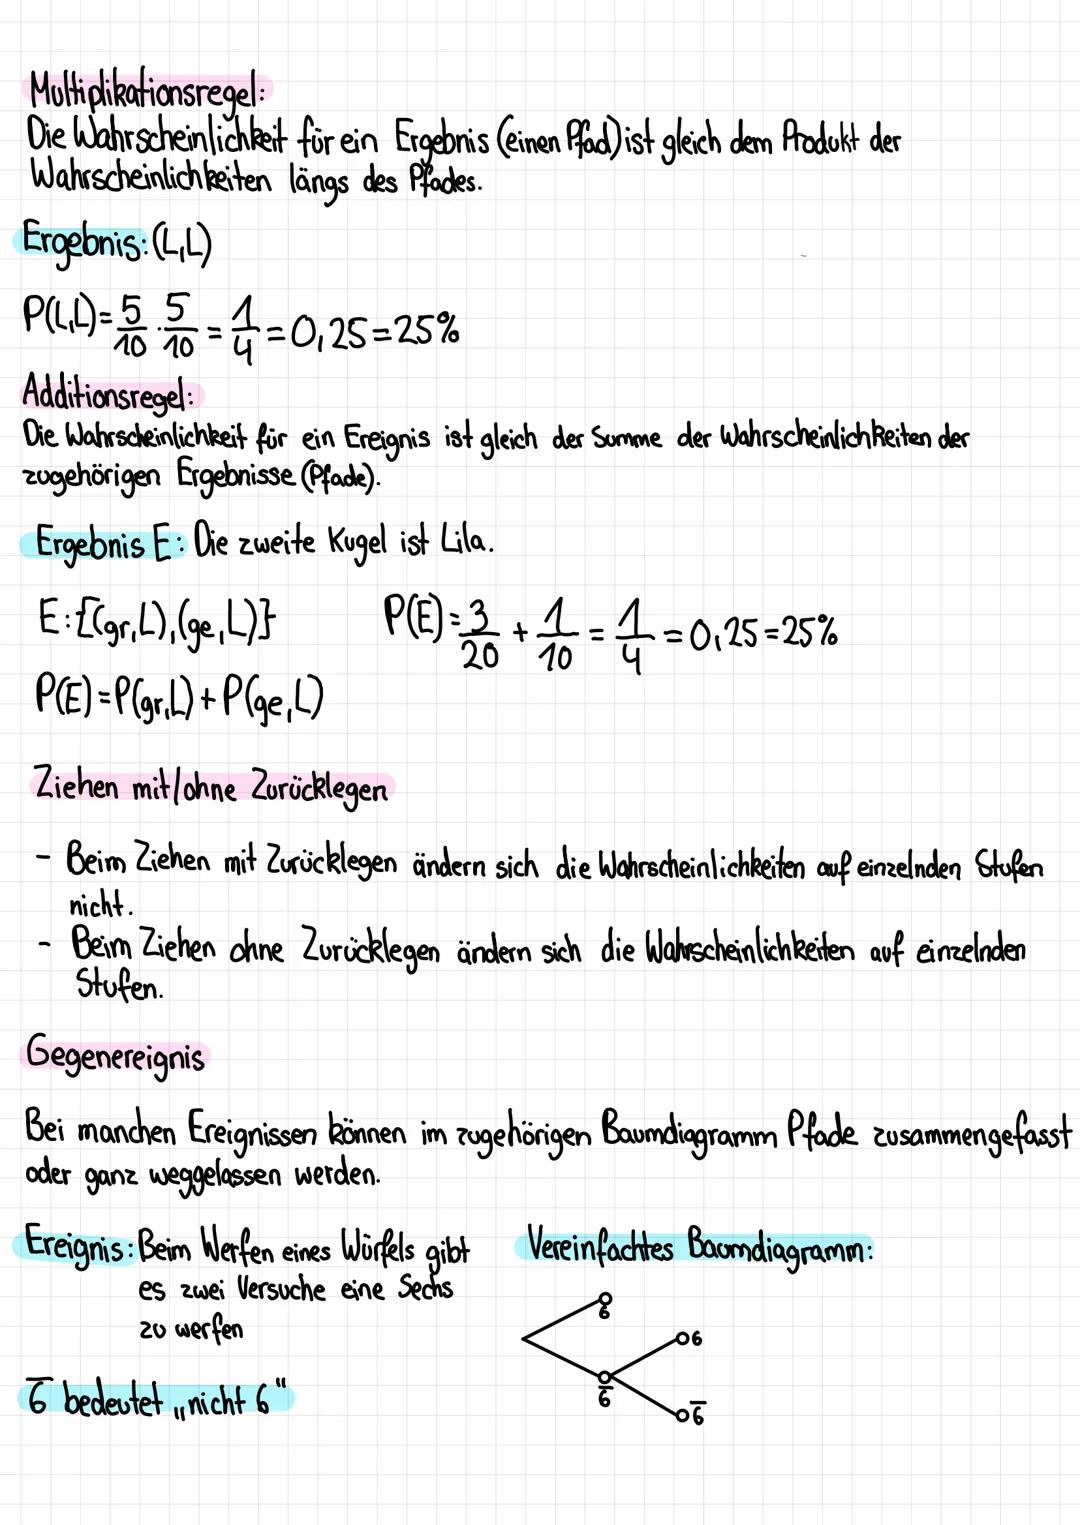 Multiplikationsregel:
Die Wahrscheinlichkeit für ein Ergebnis (einen Pfad) ist gleich dem Produkt der
Wahrscheinlichkeiten längs des Pfades.
Ergebnis: (L,L)
P(L,L)= 5/10 · 5/10 = 1/4 = 0,25 = 25%
Additionsregel:
Die Wahrscheinlichkeit für ein Ereignis ist gleich der Summe der Wahrscheinlichkeiten der
zugehörigen Ergebnisse (Pfade).
Ergebnis E: Die zweite Kugel ist Lila.
E:{(gr,L),(ge,L)} P(E)= 3/20 + 1/10 = 1/4 = 0,25 = 25%
P(E)=P(gr,L)+P(ge,L)
Ziehen mit/ohne Zurücklegen
- Beim Ziehen mit Zurücklegen ändern sich die Wahrscheinlichkeiten auf einzelnden Stufen
nicht.
- Beim Ziehen ohne Zurücklegen ändern sich die Wahrscheinlichkeiten auf einzelnden
Stufen.
Gegenereignis
Bei manchen Ereignissen können im zugehörigen Baumdiagramm Pfade zusammengefasst
oder ganz weggelassen werden.
Ereignis: Beim Werfen eines Würfels gibt
es zwei Versuche eine Sechs
zu werfen
6̅ bedeutet „nicht 6"
Vereinfachtes Baumdiagramm:
6
6
6̅
6̅